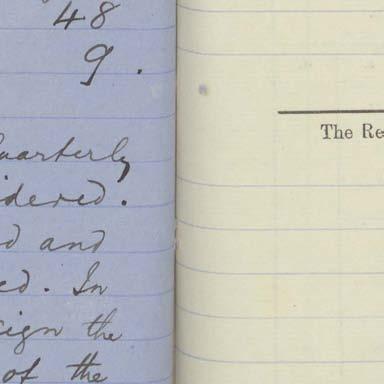 48
9.
quarterly
idered.
d and
ed. In
sign the
of the
The Re